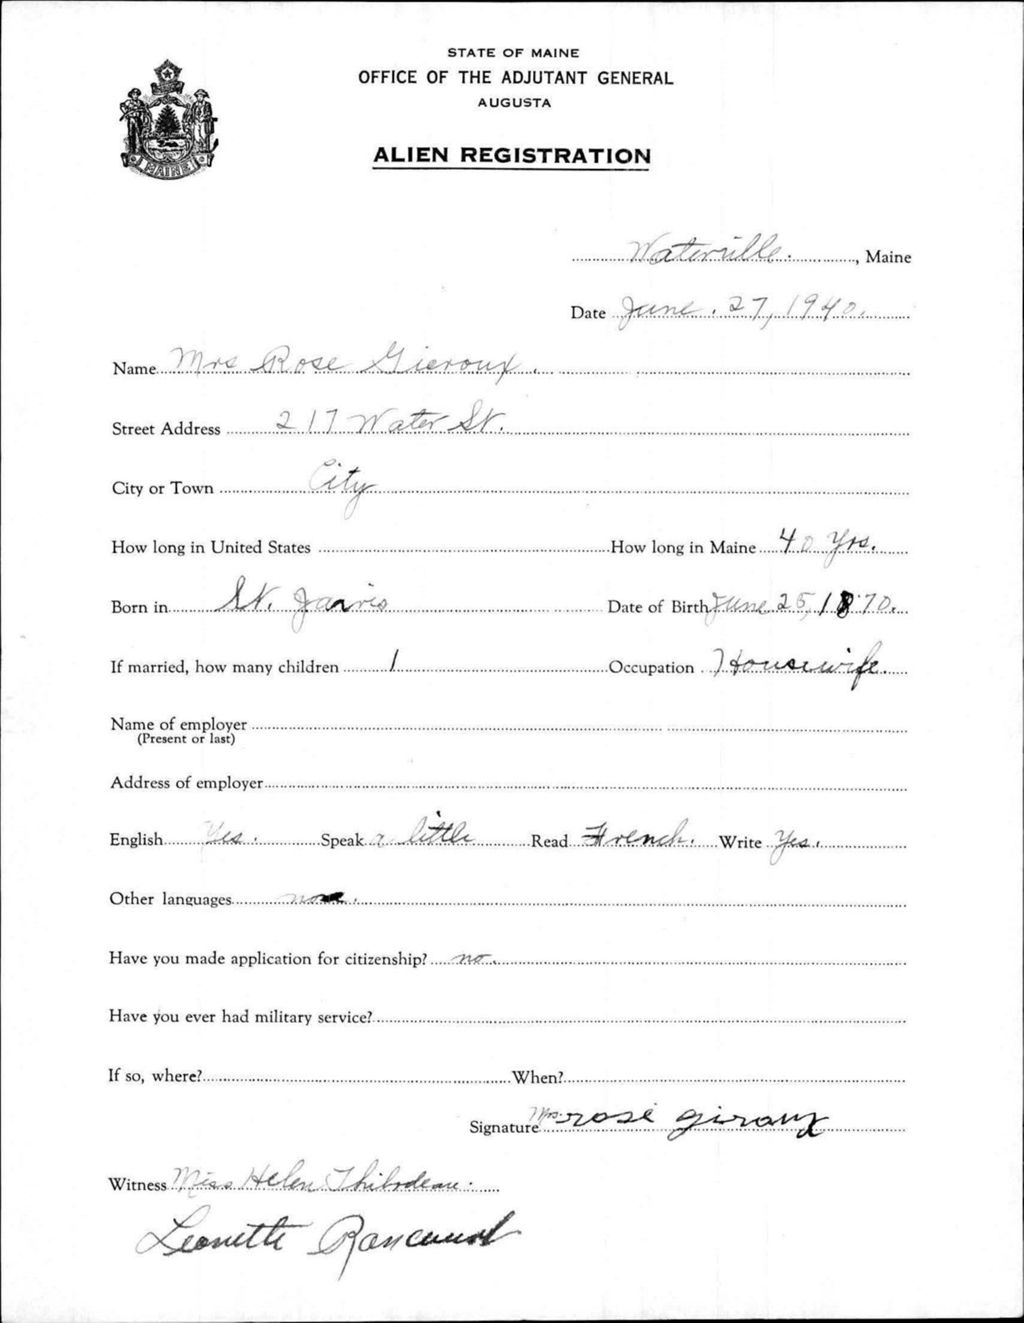 STATE OF MAINE
OFFICE OF THE ADJUTANT GENERAL
AUGUSTA
ALIEN REGISTRATION
MAINE
Waterville., Maine
Date June. 27, 1940.
Name Mrs Rose Gieroux.
Street Address 217 Water St.
City or Town City
How long in United States How long in Maine 40 Yrs.
Born in St. Jarvis Date of Birth June 25, 1870.
If married, how many children 1 Occupation Housewife.
Name of employer
(Present or last)
Address of employer
English Yes. Speak a little Read French. Write Yes.
Other languages none.
Have you made application for citizenship? no.
Have you ever had military service?
If so, where? When?
Signature Mrs. rose giroux
Witness Miss Helen Thibodeau.
Leonette Rancourt